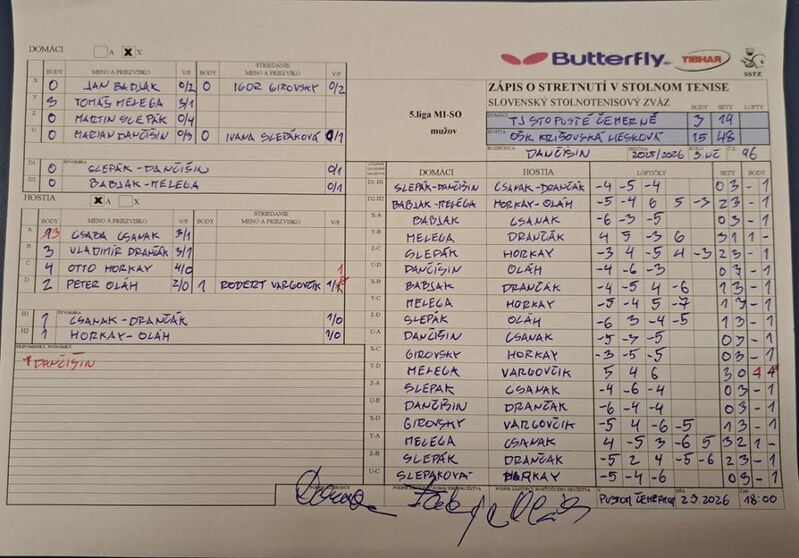 DOMÁCI A X X
Butterfly TIBHAR SSTZ
BODY MENO A PRIEZVISKO V/P BODY STRIEDANIE MENO A PRIEZVISKO V/P
X 0 JÁN BABJÁK 0/2 0 IGOR GIROVSKÝ 0/2
Y 3 TOMÁŠ MELEGA 3/1
Z 0 MARTIN SLEPÁK 0/4
U 0 MARIAN DANČIŠIN 0/3 0 IVANA SLEPÁKOVÁ 0/1
ZÁPIS O STRETNUTÍ V STOLNOM TENISE
SLOVENSKÝ STOLNOTENISOVÝ ZVÄZ
5.liga MI-SO
mužov
BODY SETY LOPTY
DOMÁCI TJ STO PUSTÉ ČEMERNÉ 3 19
HOSTIA OŠK KRIŠOVSKÁ LIESKOVÁ 15 48
ROZHODCA DANČIŠIN SEZÓNA 2025/2026 KOLO 3.NČ Č.Z. 96
D1 0 ŠTVORHRA SLEPÁK-DANČIŠIN 0/1
D2 0 BABJAK-MELEGA 0/1
HOSTIA A X X
BODY MENO A PRIEZVISKO V/P BODY STRIEDANIE MENO A PRIEZVISKO V/P
A 3 CSABA CSANAK 3/1
B 3 VLADIMÍR DRANČÁK 3/1
C 4 OTTO HORKAY 4/0
D 2 PETER OLÁH 2/0 1 ROBERT VARGOVČÍK 1/1
H1 1 ŠTVORHRA CSANAK-DRANČÁK 1/0
H2 1 HORKAY-OLÁH 1/0
PRIPOMIENKY, POZNÁMKY
DANČIŠIN
DOMÁCI HOSTIA LOPTIČKY SETY BODY
D1-H1 SLEPÁK-DANČIŠIN CSANAK-DRANČÁK -4 -5 -4 0 3 - 1
D2-H2 BABJAK-MELEGA HORKAY-OLÁH -5 -4 6 5 -3 2 3 - 1
X-A BABJAK CSANAK -6 -3 -5 0 3 - 1
Y-B MELEGA DRANČÁK 4 5 -3 6 3 1 1 -
Z-C SLEPÁK HORKAY -3 4 -5 4 -3 2 3 - 1
U-D DANČIŠIN OLÁH -4 -6 -3 0 3 - 1
X-B BABJAK DRANČÁK -4 -5 4 -6 1 3 - 1
Y-C MELEGA HORKAY -5 -4 5 -7 1 3 - 1
Z-D SLEPÁK OLÁH -6 3 -4 -5 1 3 - 1
U-A DANČIŠIN CSANAK -5 -3 -5 0 3 - 1
X-C GIROVSKY HORKAY -3 -5 -5 0 3 - 1
Y-D MELEGA VARGOVČÍK 5 4 6 3 0
Z-A SLEPAK CSANAK -4 -6 -4 0 3 - 1
U-B DANČIŠIN DRANČAK -6 -4 -4 0 3 - 1
X-D GIROVSKY VARGOVČÍK -5 4 -6 -5 1 3 - 1
Y-A MELEGA CSANAK 4 -5 3 -6 5 3 2 1 -
Z-B SLEPÁK DRANČAK -5 2 4 -5 -6 2 3 - 1
U-C SLEPAKOVÁ HORKAY -5 -4 -6 0 3 - 1
18:00
2.3.2026